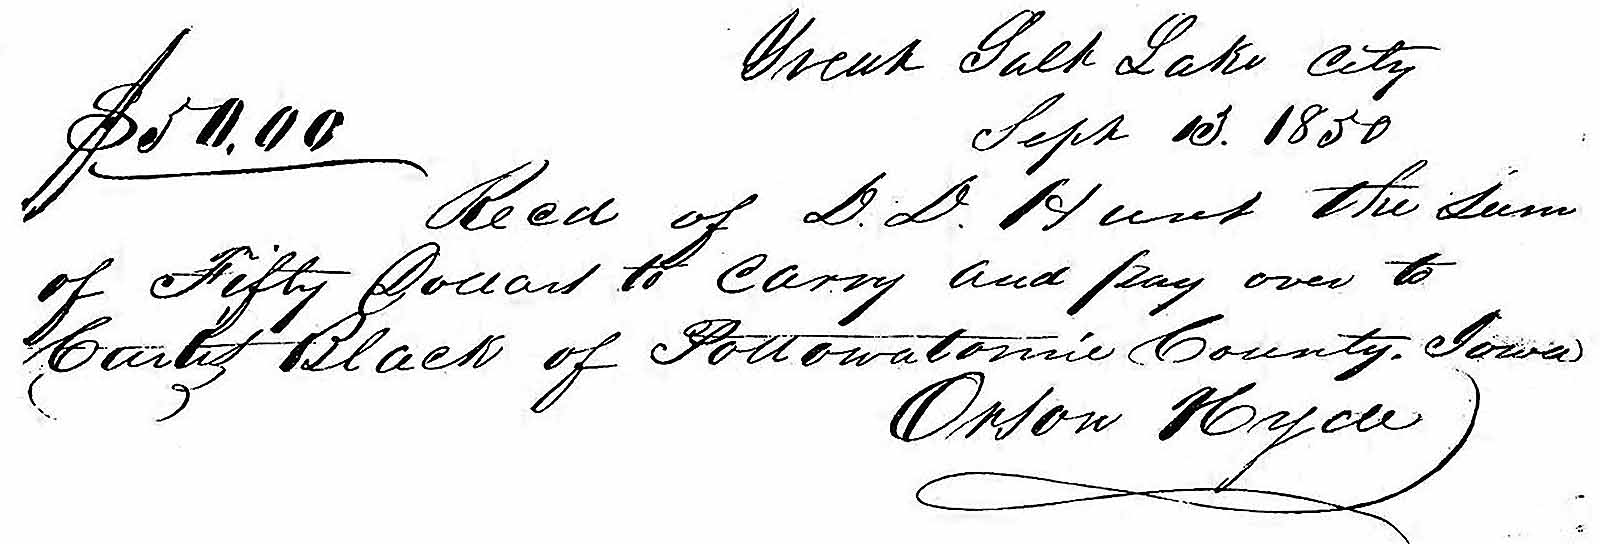 Great Salt Lake City
$50.00
Sept 13. 1850
Recd of D. D. Hunt the Sum
of Fifty Dollars to carry and pay over to
Curtis Black of Pottowatomie County. Iowa
Orson Hyde